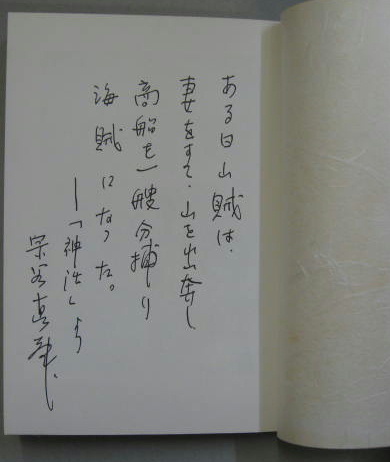 ある日山賊は、
妻をすて、山を出奔し
商船を一艘分捕り
海賊になった。
―「神話」より
宗谷真爾